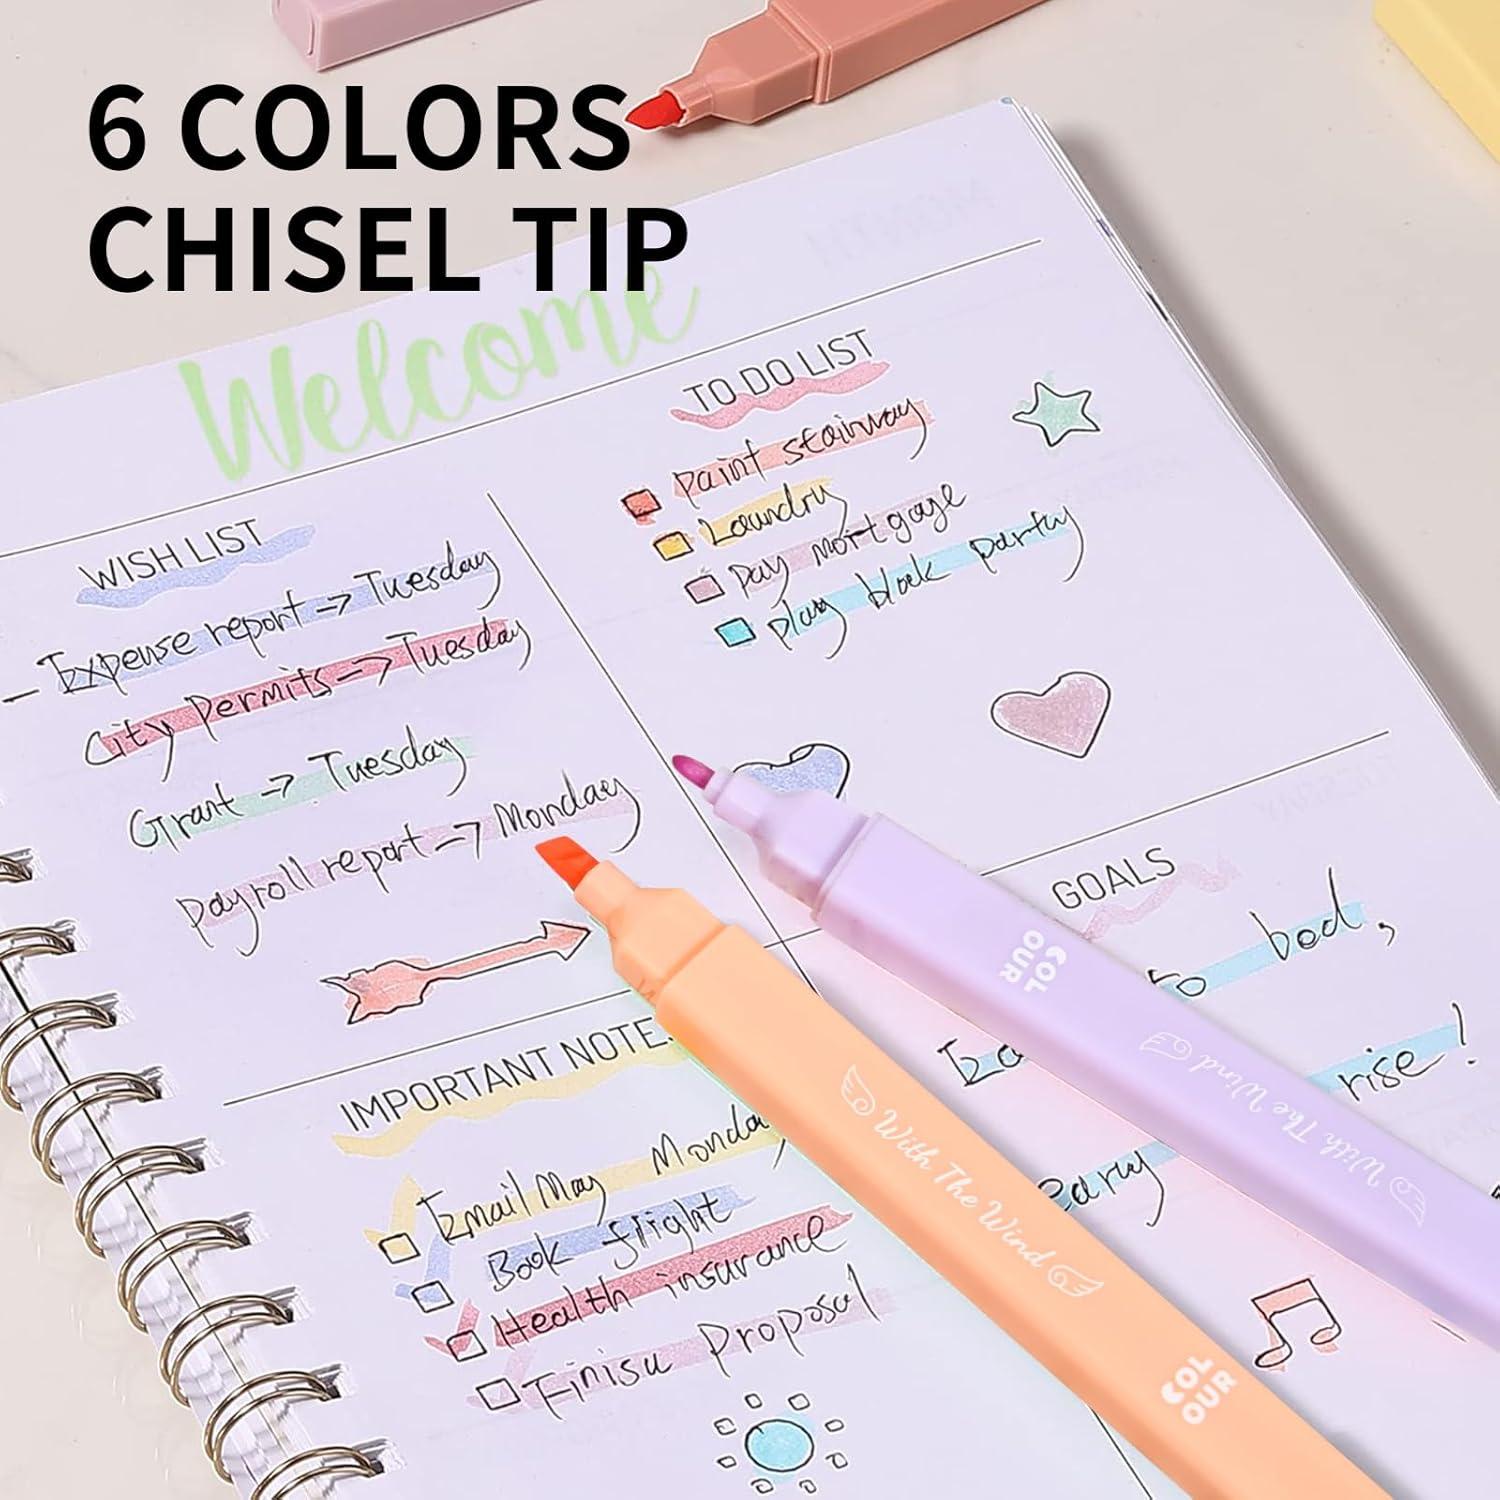 6 COLORS
CHISEL TIP
Welcome
TO DO LIST
Paint stairway
Laundry
Pay mortgage
play block party
WISH LIST
– Expense report → Tuesday
City Permits → Tuesday
Grant → Tuesday
Payroll report → Monday
GOALS
to bod,
rise!
early
IMPORTANT NOTE
Email May Monday
Book flight
Health insurance
Finisu Proposal
COL
OUR
With The Wind
COL
OUR
With The Wind